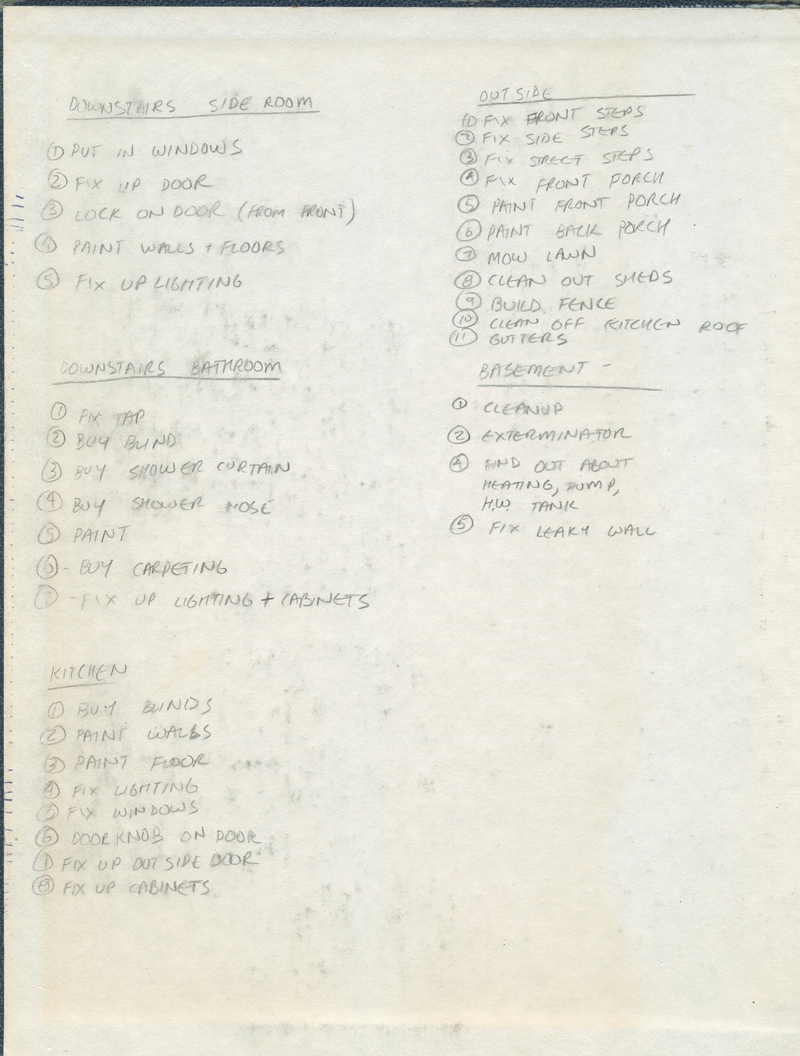 DOWNSTAIRS SIDE ROOM
① PUT IN WINDOWS
② FIX UP DOOR
③ LOCK ON DOOR (FROM FRONT)
④ PAINT WALLS + FLOORS
⑤ FIX UP LIGHTING
DOWNSTAIRS BATHROOM
① FIX TAP
② BUY BLIND
③ BUY SHOWER CURTAIN
④ BUY SHOWER HOSE
⑤ PAINT
⑥ - BUY CARPETING
⑦ - FIX UP LIGHTING + CABINETS
KITCHEN
① BUY BLINDS
② PAINT WALLS
③ PAINT FLOOR
④ FIX LIGHTING
⑤ FIX WINDOWS
⑥ DOORKNOB ON DOOR
⑦ FIX UP OUTSIDE DOOR
⑧ FIX UP CABINETS
OUTSIDE
① FIX FRONT STEPS
② FIX SIDE STEPS
③ FIX STREET STEPS
④ FIX FRONT PORCH
⑤ PAINT FRONT PORCH
⑥ PAINT BACK PORCH
⑦ MOW LAWN
⑧ CLEAN OUT SHEDS
⑨ BUILD FENCE
⑩ CLEAN OFF KITCHEN ROOF
⑪ GUTTERS
BASEMENT -
① CLEANUP
② EXTERMINATOR
④ FIND OUT ABOUT
HEATING, PUMP,
H.W. TANK
⑤ FIX LEAKY WALL